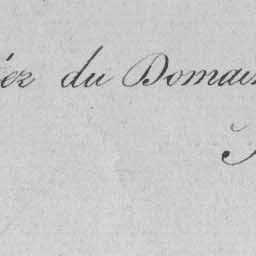 éez du Domain